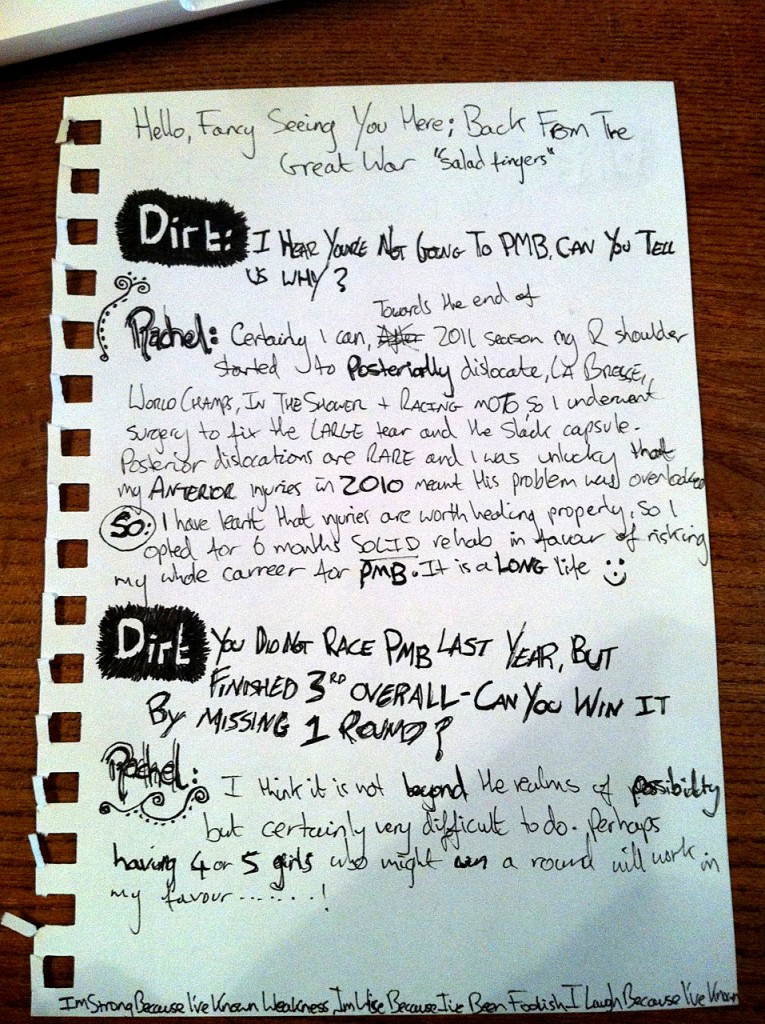 Hello, Fancy Seeing You Here; Back From The
Great War "Salad fingers"
Dirt: I HEAR YOU'RE NOT GOING TO PMB, CAN YOU TELL
US WHY?
Towards the end of
Rachel: Certainly I can, After 2011 season my R shoulder
started to Posteriorly dislocate, LA BRESSE,
WORLD CHAMPS, IN THE SHOWER + RACING MOTO, so I underwent
surgery to fix the LARGE tear and the slack capsule.
Posterior dislocations are RARE and I was unlucky that
my ANTERIOR injuries in 2010 meant this problem was overlooked
SO: I have learnt that injuries are worth healing properly, so I
opted for 6 months SOLID rehab in favour of risking
my whole carreer for PMB. It is a LONG life
Dirt YOU DID NOT RACE PMB LAST YEAR, BUT
FINISHED 3RD OVERALL - CAN YOU WIN IT
BY MISSING 1 ROUND?
Rachel: I think it is not beyond the realms of possibility
but certainly very difficult to do. Perhaps
having 4 or 5 girls who might win a round will work in
my favour.......!
I'm Strong Because I've Known Weakness, I'm Wise Because I've Been Foolish I Laugh Because I've Known